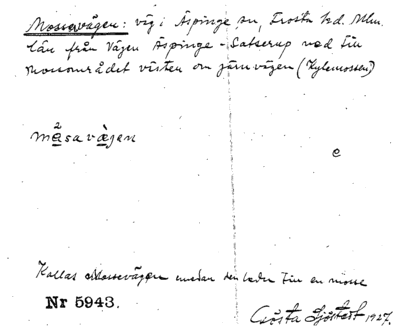 Mossevägen: väg i Äspinge sn, Frosta hd. Mlm.
län från Vägen Äspinge - Satserup ned till
mossområdet väster om järnvägen (Kylemossen)
måsavägen
e
Kallas Mossevägen medan den leder till en mosse
Nr 5943.
Gösta Sjöstedt 1927.